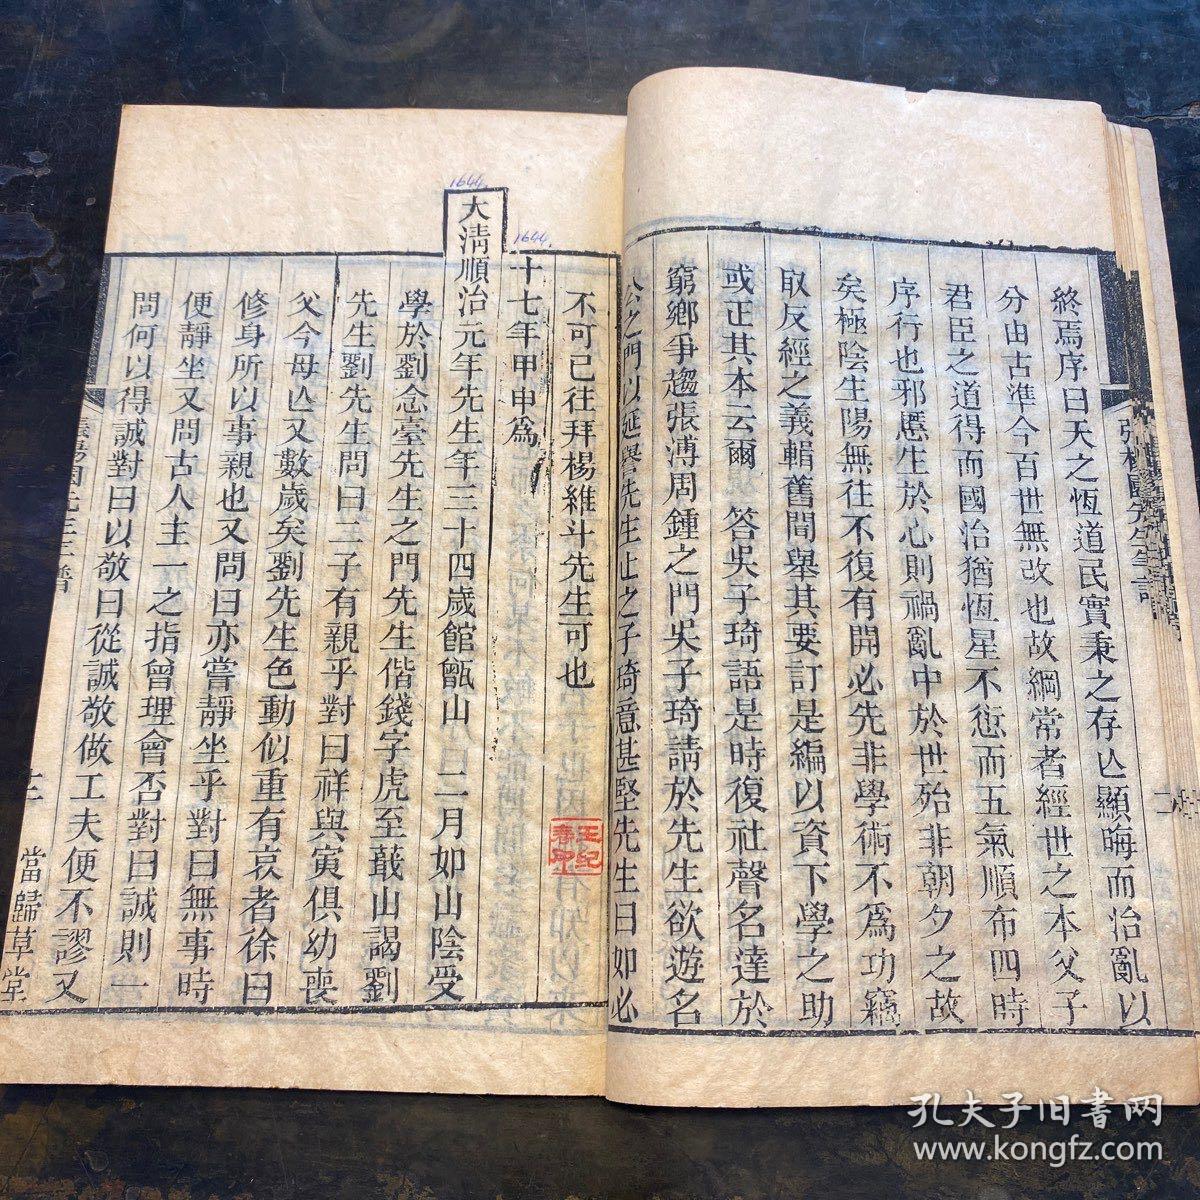 終焉序曰天之恆道民實秉之存亾顯晦而治亂以
分由古準今百世無改也故綱常者經世之本父子
君臣之道得而國治猶恆星不愆而五氣順布四時
序行也邪慝生於心則禍亂中於世殆非朝夕之故
矣極陰生陽無往不復有開必先非學術不爲功竊
取反經之義輯舊聞舉其要訂是編以資下學之助
或正其本云爾 答吳子琦語是時復社聲名達於
窮鄉爭趨張溥周鍾之門吳子琦請於先生欲遊名
公之門以延譽先生止之子琦意甚堅先生曰如必
不可已往拜楊維斗先生可也
十七年甲申爲
大淸順治元年先生年三十四歲館甑山 二月如山陰受
學於劉念臺先生之門先生偕錢字虎至蕺山謁劉
先生劉先生問曰二子有親乎對曰祥與寅俱幼喪
父今母亾又數歲矣劉先生色動似重有哀者徐曰
修身所以事親也又問曰亦嘗靜坐乎對曰無事時
便靜坐又問古人主一之指曾理會否對曰誠則一
問何以得誠對曰以敬曰從誠敬做工夫便不謬又
當歸草堂
1644
1644
王紀春印
孔夫子旧书网
www.kongfz.com